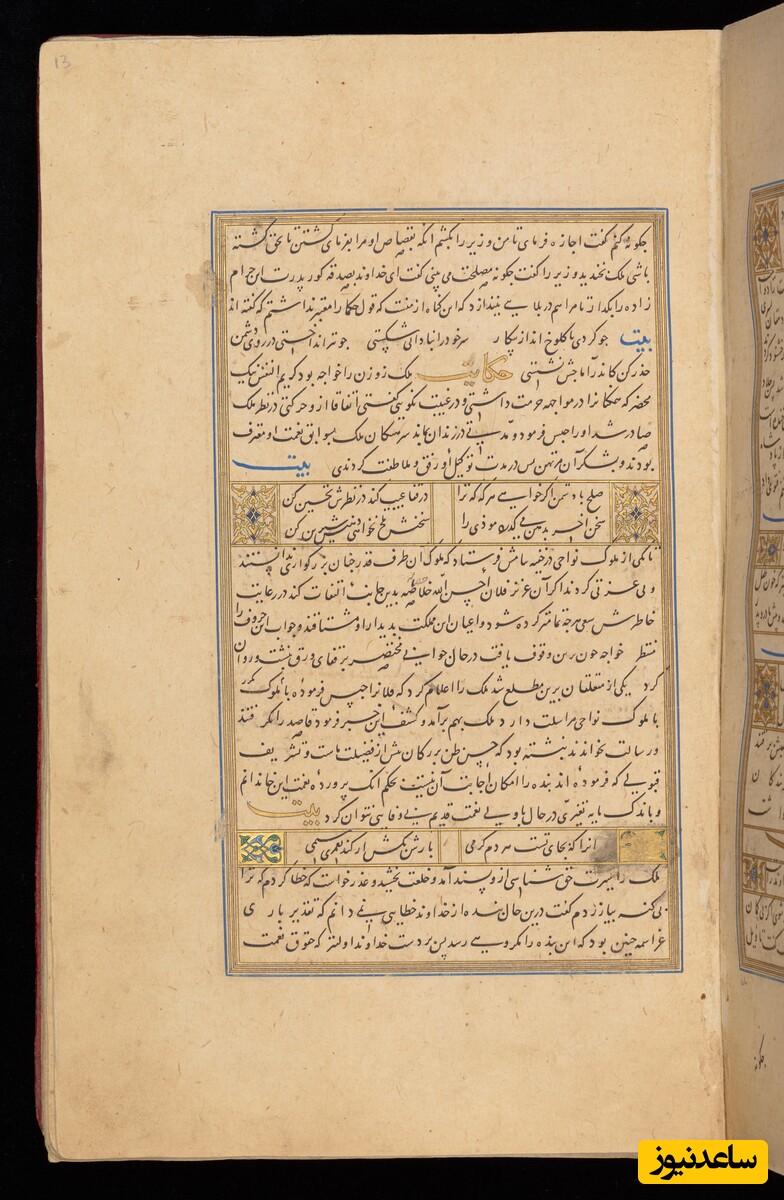 13
چگونه کنم گفت اجازه فرمای تا من وزیر را بکشم انگه بقصاص او مرا بفرمای کشتن تا بحق کشته
باشی ملک بخندید وزیر را گفت چگونه مصلحت می بینی گفت ای خداوند بصدقه کور پدرت این حرام
زاده را بگذار تا مرا هم در بلایی نیندازد که این گناه از منست که قول حکما را معتبر نداشتم که گفته اند
بیت جو کردی با کلوخ انداز پیکار سر خود را بنادانی شکستی جو تیر انداختی در روی دشمن
حذر کن کاندر آماجش نشستی حکایت ملک زوزن را خواجه بود کریم النفس نیک
محضر که همکانرا در مواجهه حرمت داشتی و در غیبت نکویی گفتی اتفاقا از و حرکتی در نظر ملک
صادر شد او را حبس فرمود و مدتی در زندان بماند سرهنگان ملک بسوابق نعمت او معترف
بودند و بشکر آن مرتهن بس در مدت توکیل او رفق و ملاطفت کردندی بیت
صلح با دشمن اگر خواهی هر گه که ترا در قفا عیب کند در نظرش تحسین کن
سخن آخر بدهن می گذرد موذی را سخنش تلخ نخواهی دهنش شیرین کن
تا یکی از ملوک نواحی در خفیه پیامش فرستاد که ملوک ان طرف قدر چنان بزرگواری ندانستند
و بی عزتی کردند اگر آن عزیز فلان احسن الله خلاصه بدین جانب التفات کند در رعایت
خاطرش سعی هرچه تمامتر کرده شود و اعیان این مملکت بدیدار او مشتاقند و جواب این حروف را
منتظر خواجه چون برین وقوف یافت در حال جوابی مختصر بر قفای ورق نبشت و روان
کرد یکی از متعلقان برین مطلع شد ملک را اعلام کرد که فلانرا حبس فرموده با ملوک
با ملوک نواحی مراسلت دارد ملک بهم برآمد و کشف این خبر فرمود قاصد را بگرفتند
و رسالت بخواندند نبشته بود که حسن ظن بزرگان بیش از فضیلت ماست و تشریف
قبولی که فرموده اند بنده را امکان اجابت آن نیست بحکم انک پرورده نعمت این خاندانم
و باندک مایه تغیری در حال با ولی نعمت قدیم بی وفایی نتوان کرد بیت
انرا که بجای تست هر دم کرمی عذرش بنه ار کند بعمری ستمی
ملک را سیرت حق شناسی از و پسند آمد و خلعت بخشید و عذر خواست که خطا کردم که ترا
بی گنه بیازردم گفت درین حال بنده از خداوند خطایی نمی دانم که تقدیر باری
عز اسمه چنین بود که این بنده را مکروهی رسد پس بر دست خداوند اولیتر که حقوق نعمت
چگونه
ساعدنیوز